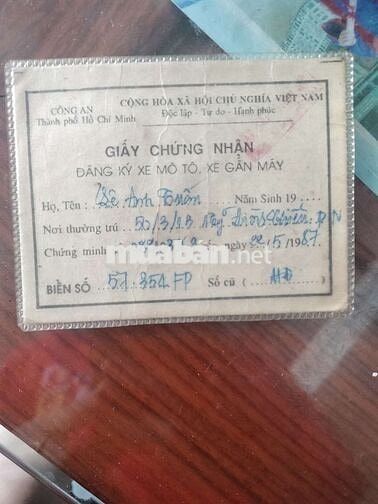 CÔNG AN
Thành phố Hồ Chí Minh
CỘNG HÒA XÃ HỘI CHỦ NGHĨA VIỆT NAM
Độc lập - Tự do - Hạnh phúc
GIẤY CHỨNG NHẬN
ĐĂNG KÝ XE MÔ TÔ, XE GẮN MÁY
Họ, Tên : Lê Anh Tuấn Năm Sinh 19 ...
Nơi thường trú : 50/3/13
Chứng minh ngày 02/5/1987.
muaban.net
BIỂN SỐ : 57.354 FP Số cũ (